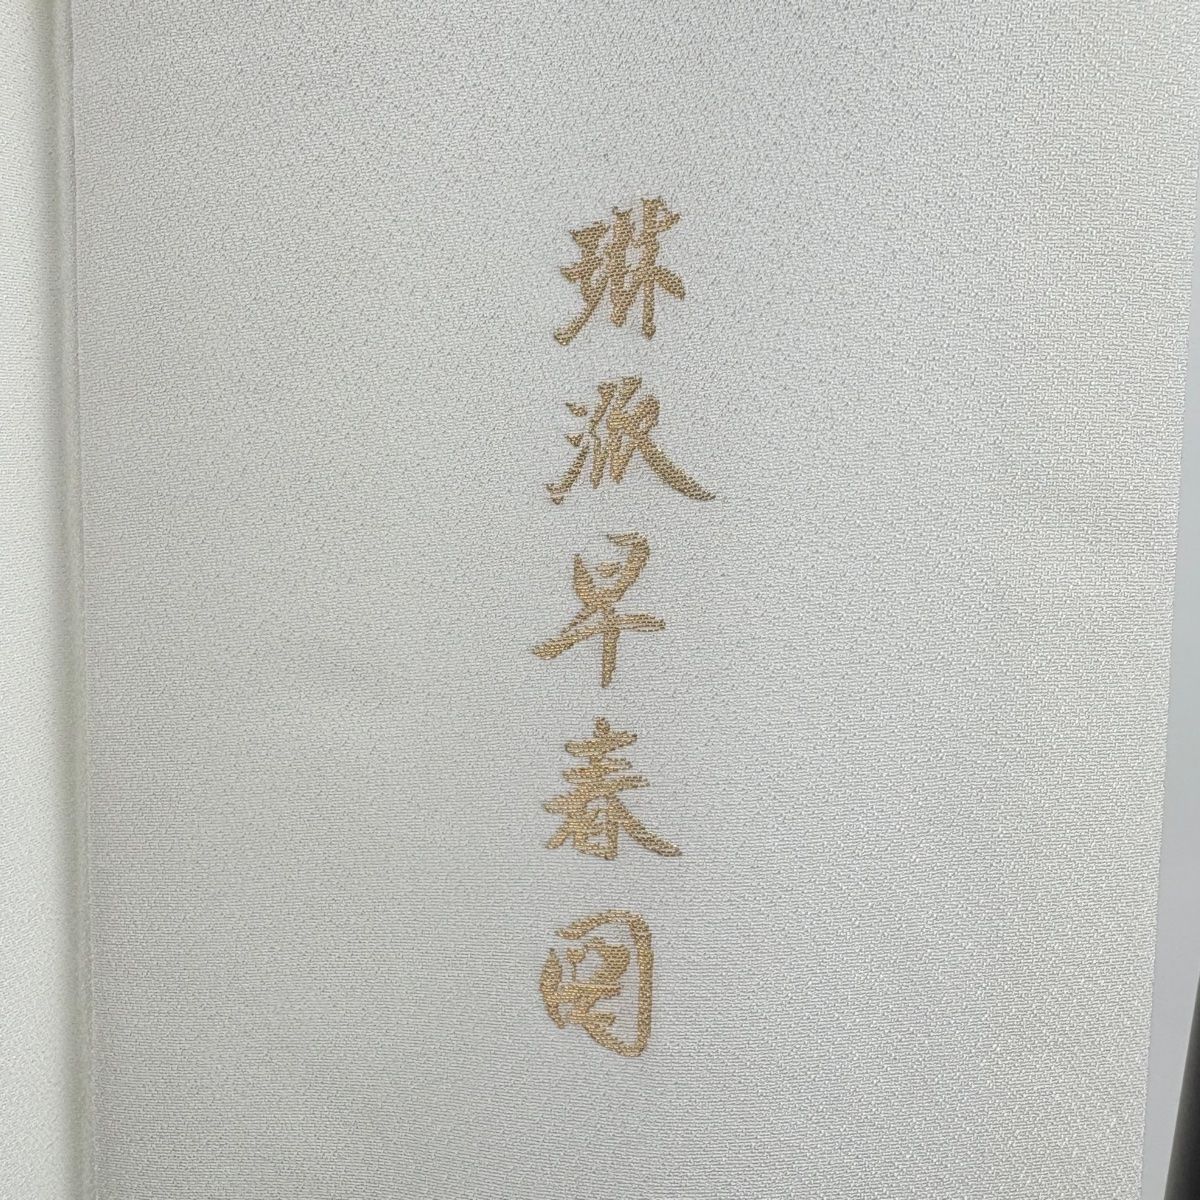 琳派早春図